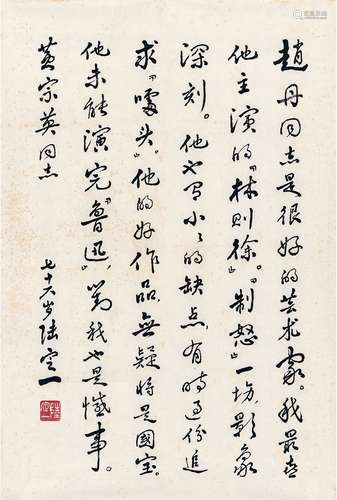 趙丹同志是很好的芸术家。我最喜
他主演的『林則徐』。『制怒』一場，影象
深刻。他也有小小的缺点，有時过份追
求『噱头』。他的好作品，無疑將是國宝。
他未能演完『鲁迅』，對我也是憾事。
黄宗英同志
七十六岁陆定一
陸定一